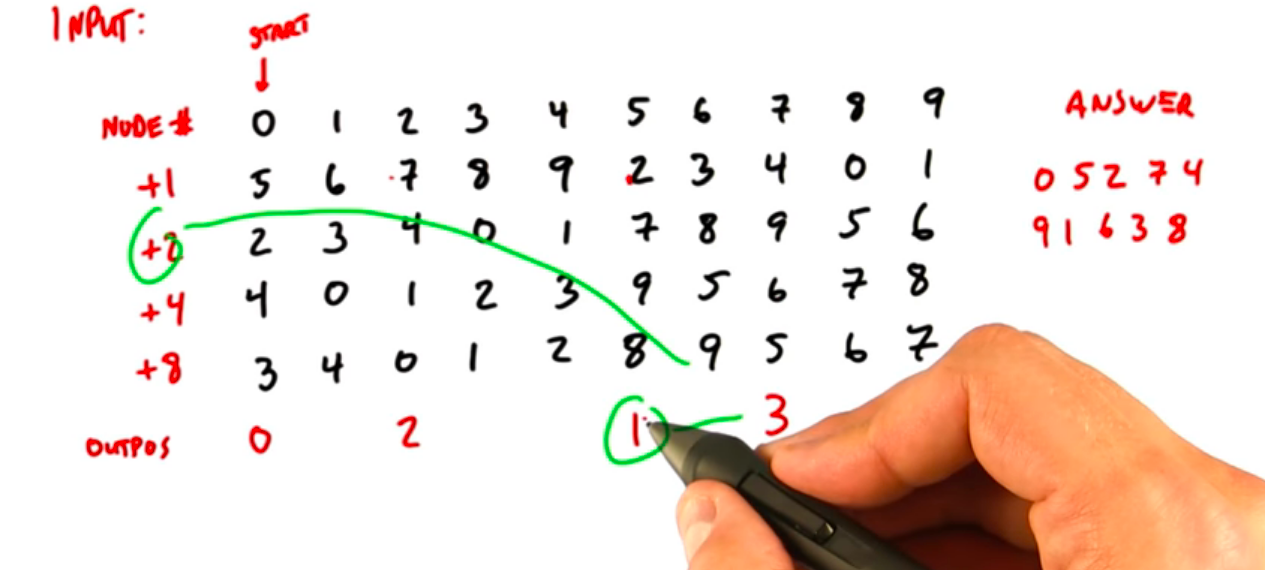 INPUT:
START
NODE # 0 1 2 3 4 5 6 7 8 9
+1 5 6 7 8 9 2 3 4 0 1
+2 2 3 4 0 1 7 8 9 5 6
+4 4 0 1 2 3 9 5 6 7 8
+8 3 4 0 1 2 8 9 5 6 7
OUTPOS 0 2 1 3
ANSWER
0 5 2 7 4
9 1 6 3 8